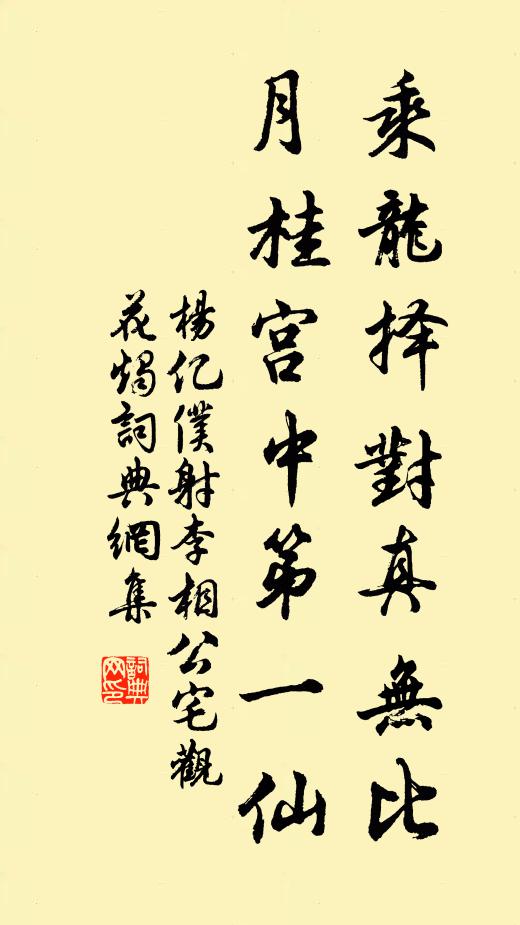 乘龍择對真無比
月桂宮中第一仙
楊亿僕射李相公宅觀
花燭詞典網集
詞典网印